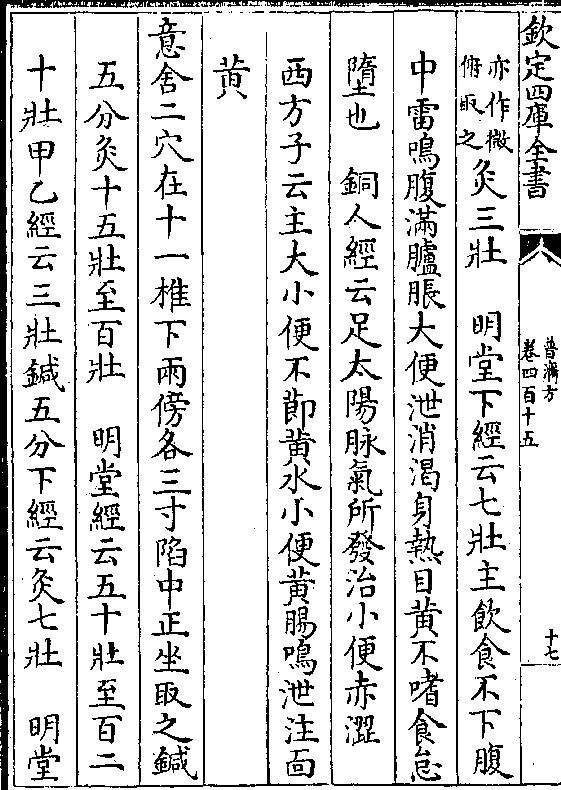 欽定四庫全書
普濟方
卷四百十五
十七
亦作微
俯取之
灸三壯　明堂下經云七壯主飲食不下腹
中雷鳴腹滿臚脹大便泄消渴身熱目黃不嗜食怠
墮也　銅人經云足太陽脉氣所發治小便赤澀
西方子云主大小便不節黃水小便黃腸鳴泄注面
黃
意舍二穴在十一椎下兩傍各三寸陷中正坐取之鍼
五分灸十五壯至百壯　明堂經云五十壯至百二
十壯甲乙經云三壯鍼五分下經云灸七壯　明堂